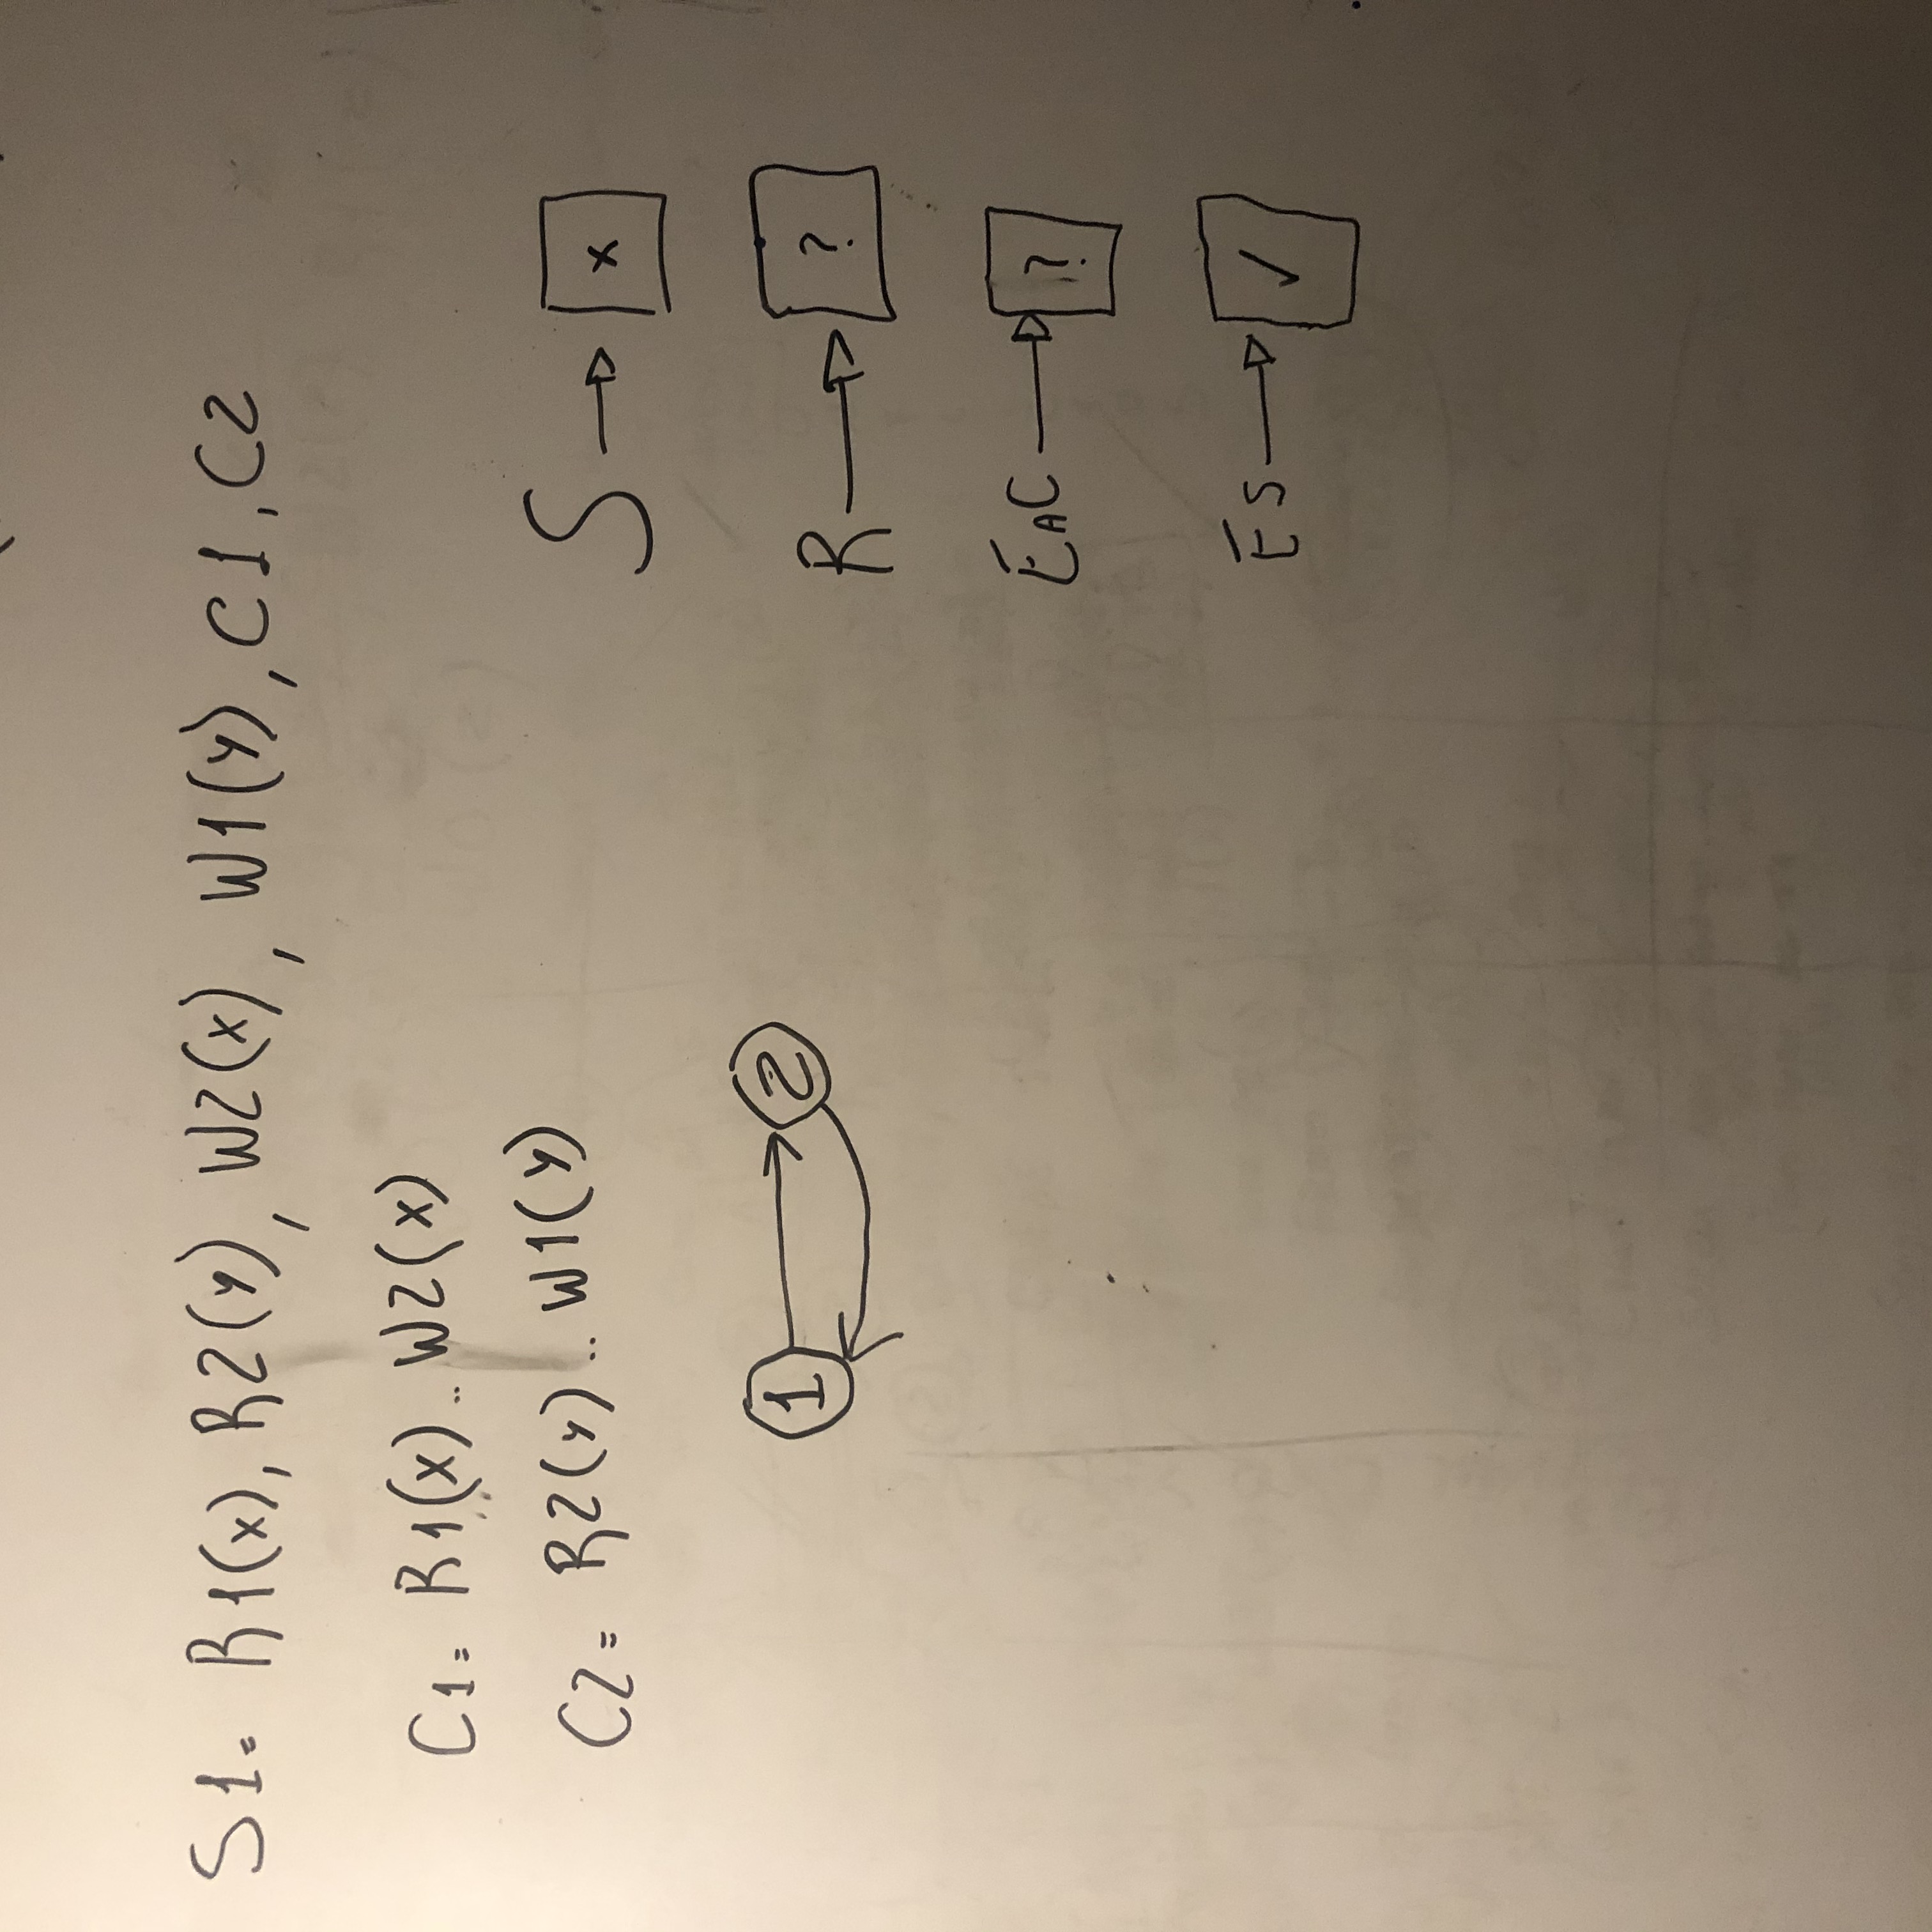 S1= R1(x), R2(y), W2(x), W1(y), C1, C2
C1= R1(x).. W2(x)
C2= R2(y).. W1(y)
1 2
S → x
R → ?
EAC → ?
ES → ✓